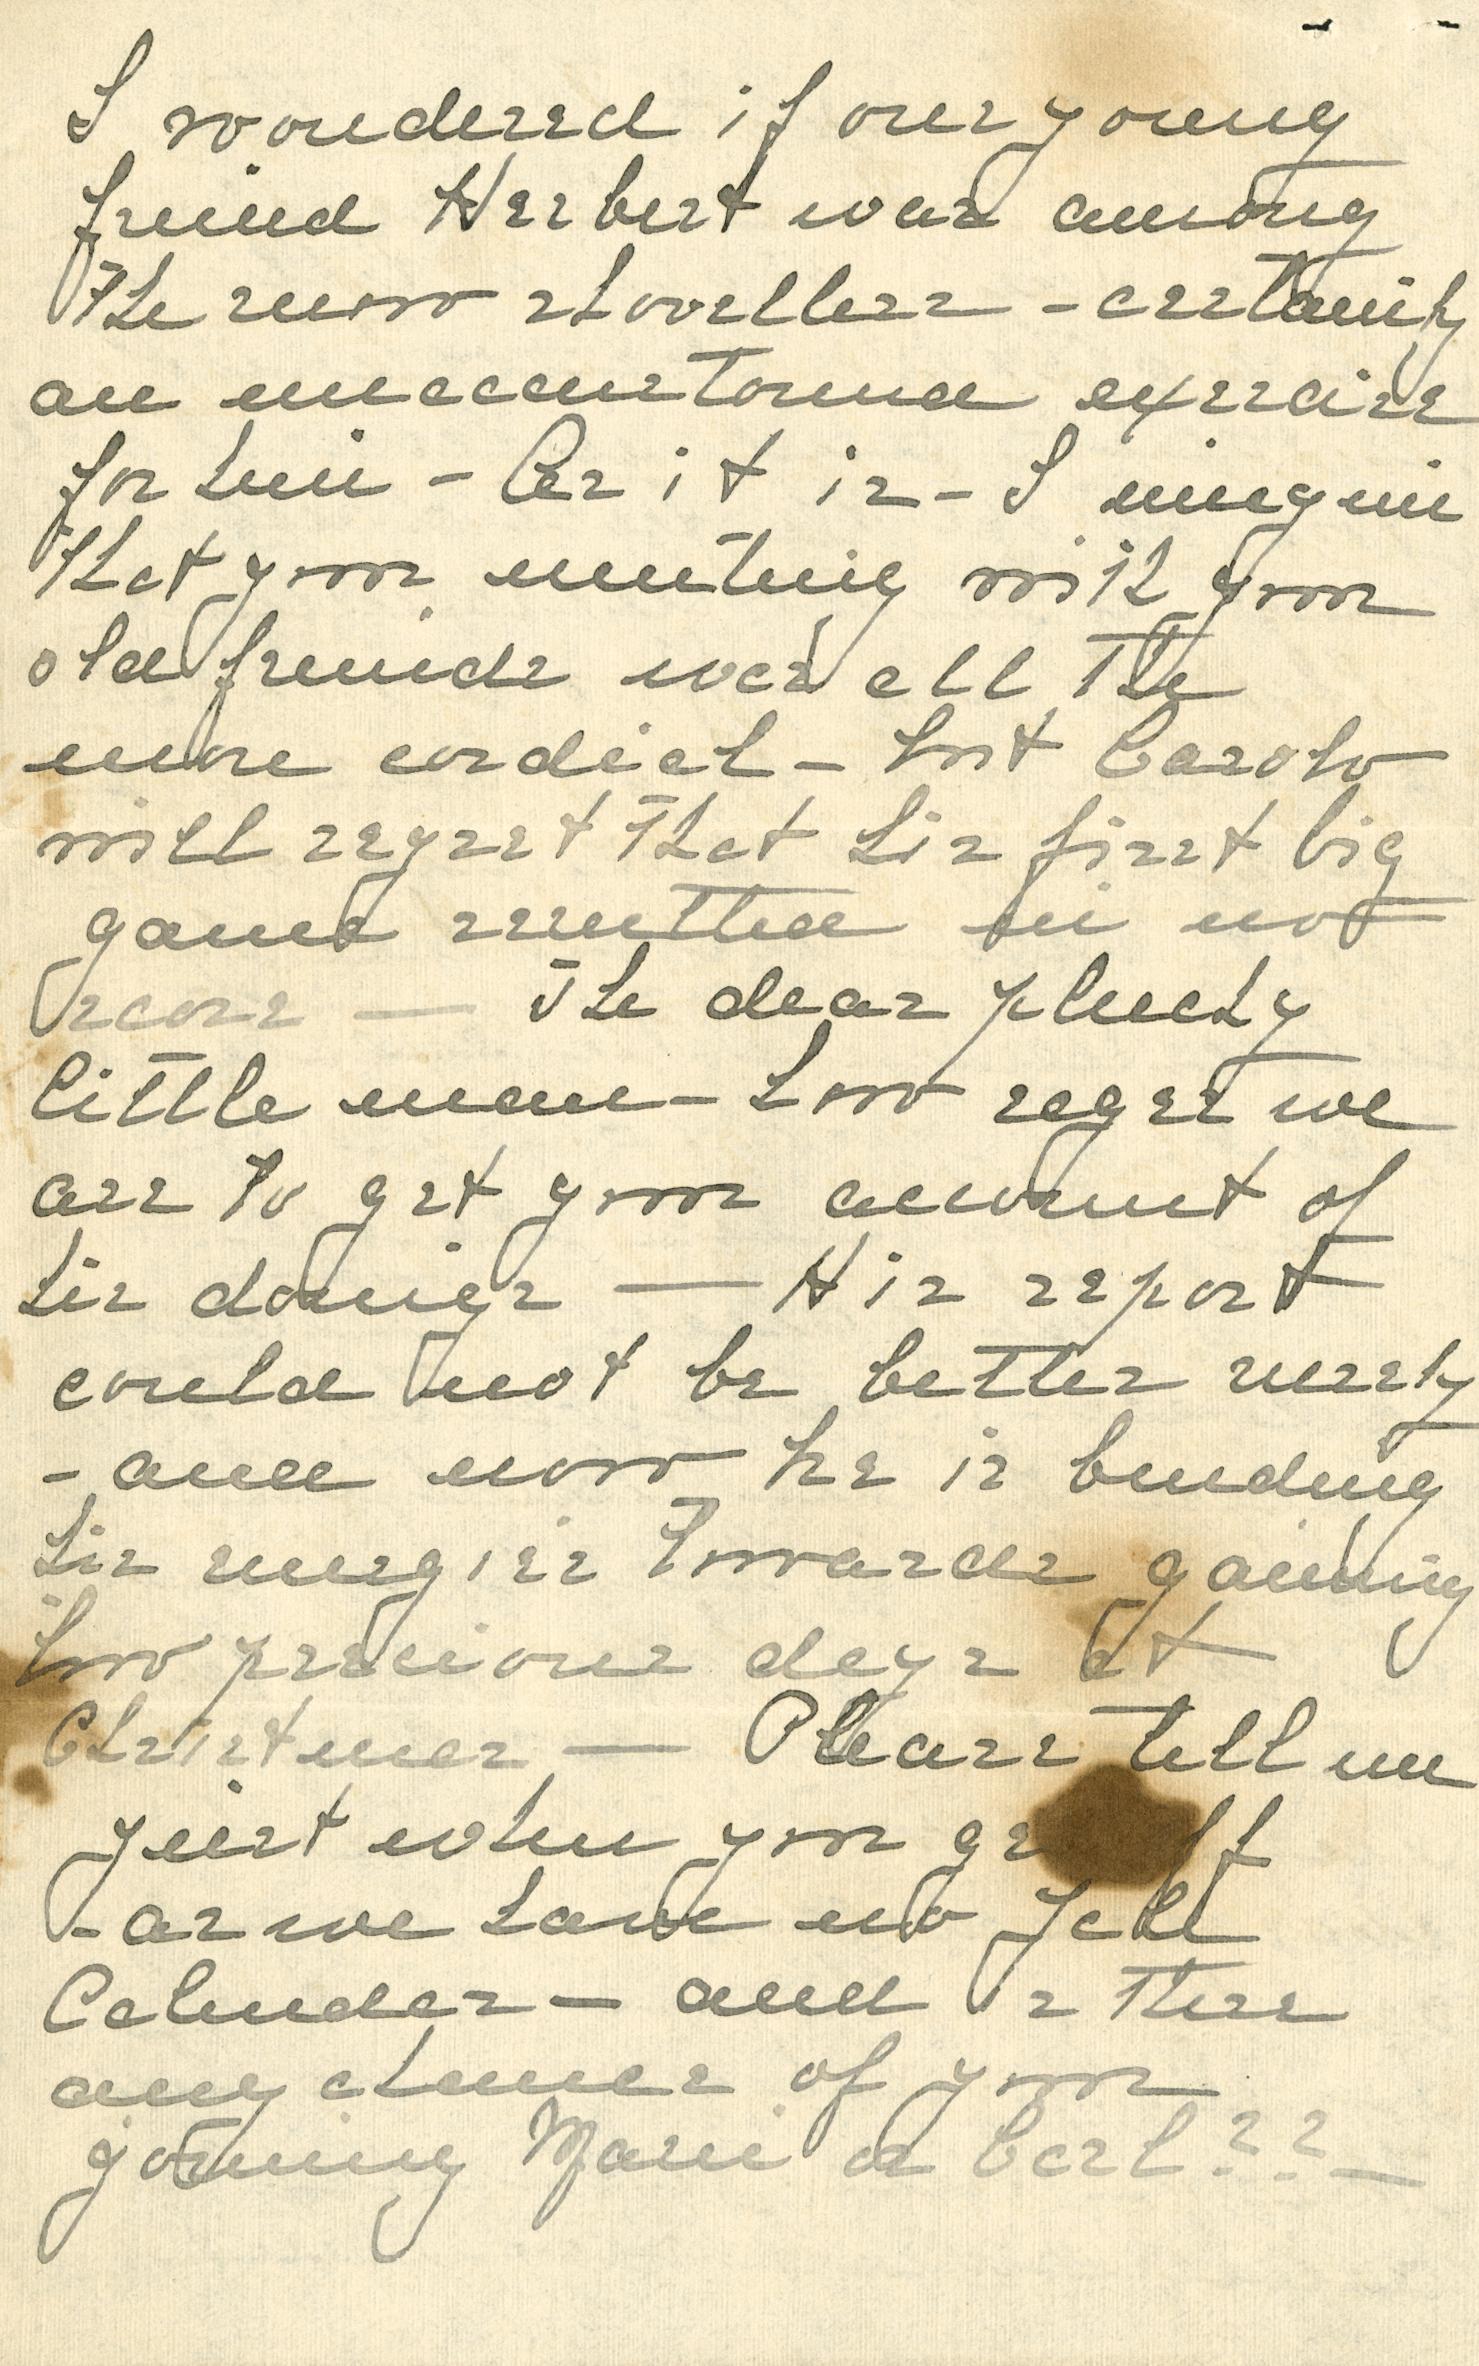 I wondered if our young
friend Herbert was among
the snow shovellers - certainly
an unaccustomed exercise
for him - As it is - I imagine
that your meeting with your
old friends was all the
more cordial - but Carolo
will regret that his first big
game resulted in no
score — The dear plucky
little man - how eager we
are to get your account of
his doings — His report
could not be better surely
- and now he is bending
his energies towards gaining
two precious days at
Christmas — Please tell me
just when you get off
- as we have no Yale
Calendar - and is there
any chance of your
joining Marie or Carl ?? —